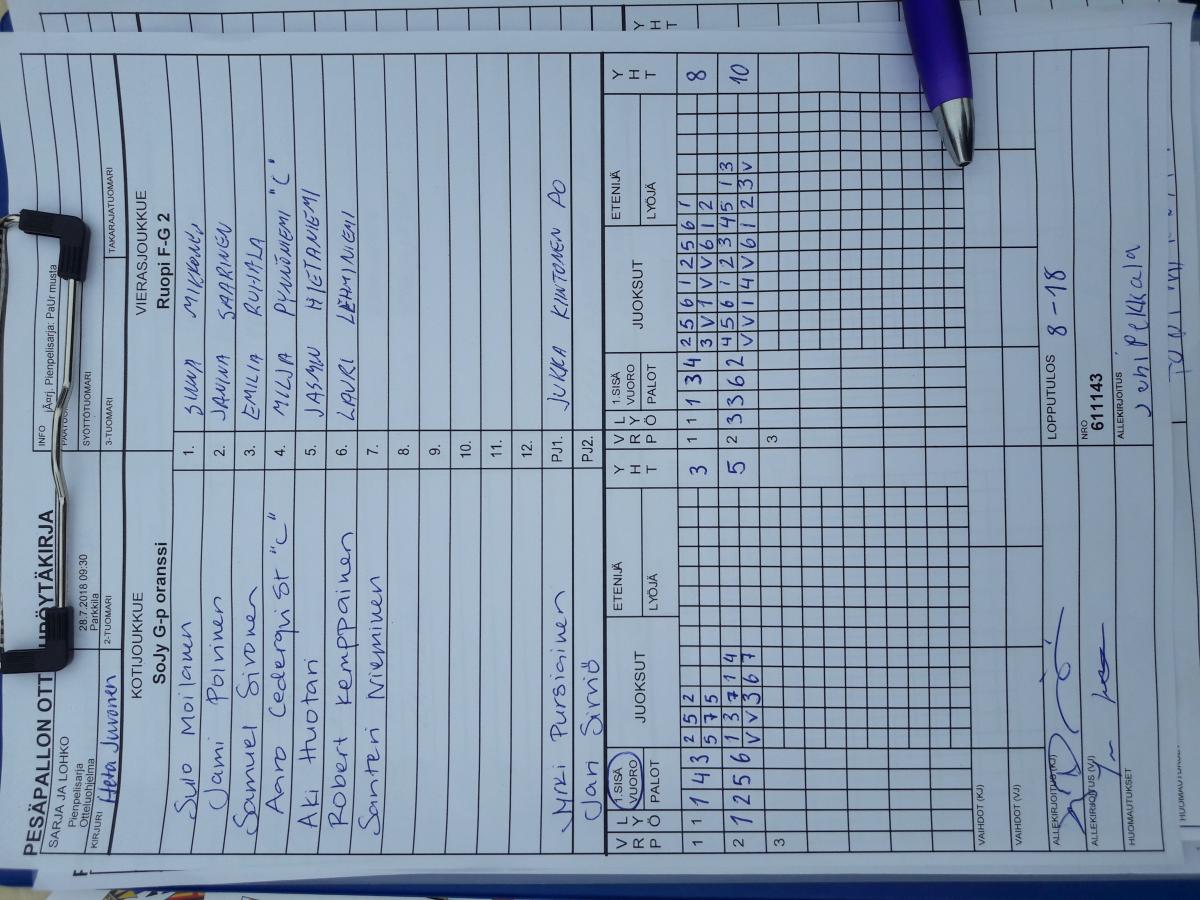 PESÄPALLON OTT PÖYTÄKIRJA
SARJA JA LOHKO
Pienpelisarja
Otteluohjelma
28.7.2018 09:30
Parkkila
INFO
Pienpelisarja: PaUr musta
KIRJURI Heta Juvonen
2-TUOMARI
SYÖTTÖTUOMARI
3-TUOMARI
TAKARAJATUOMARI
KOTIJOUKKUE
SoJy G-p oranssi
VIERASJOUKKUE
Ruopi F-G 2
Sulo Moilanen 1. MIKKONEN
Jami Polvinen 2. JANINA SAARINEN
Samuel Sivonen 3. EMILIA RUHALA
Aaro Cederqvist "C" 4. MILJA PYNNÖNEN "C"
Aki Huotari 5. JASMIN HIETANIEMI
Robert Kemppainen 6. LAURI LEHMINIEMI
Santeri Nieminen 7.
8.
9.
10.
11.
12.
Miki Pursiainen PJ1. JUKKA KINTONEN PO
Jari Sirviö PJ2.
V R P L Y Ö 1.SISÄ VUORO PALOT JUOKSUT ETENIJÄ LYÖJÄ Y H T V R P L Y Ö 1.SISÄ VUORO PALOT JUOKSUT ETENIJÄ LYÖJÄ Y H T
1 1 1 4 3 2 5 2 3 1 1 1 3 4 2 5 6 1 2 5 6 1 8
5 7 5 3 V 1 V V 6 1 2
2 1 2 5 6 1 3 7 1 4 5 2 3 3 6 2 4 5 6 1 2 3 4 5 1 3 10
V V 3 6 7 V V 1 4 V 6 1 2 3 V
3 3
VAIHDOT (KJ)
VAIHDOT (VJ)
ALLEKIRJOITUS (KJ)
LOPPUTULOS 8-18
ALLEKIRJOITUS (VJ)
NRO
611143
HUOMAUTUKSET
ALLEKIRJOITUS
Juhi Pekkala